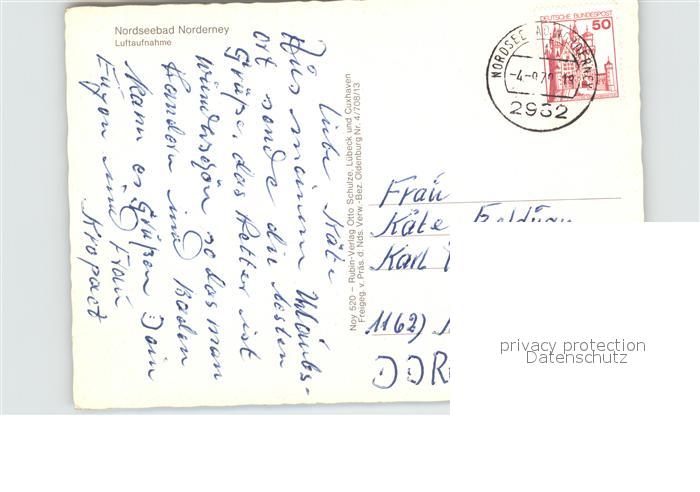 Nordseebad Norderney
Luftaufnahme
Liebe Käte
Aus meinem Urlaubs-
ort sende die besten
Grüße. das Wetter ist
wunderschön so das man
Wandern und Baden
kann es Grüßen Dein
Eugen und Frau
Noy 520 – Rubin-Verlag Otto Schulze, Lübeck und Cuxhaven
Freigeg. v. Präs. d. Nds. Verw.-Bez. Oldenburg Nr. 4/708/13
DEUTSCHE BUNDESPOST
50
NORDSEEBAD NORDERNEY
2982
Frau
Käte
Karl
1162)
DDR
privacy protection
Datenschutz